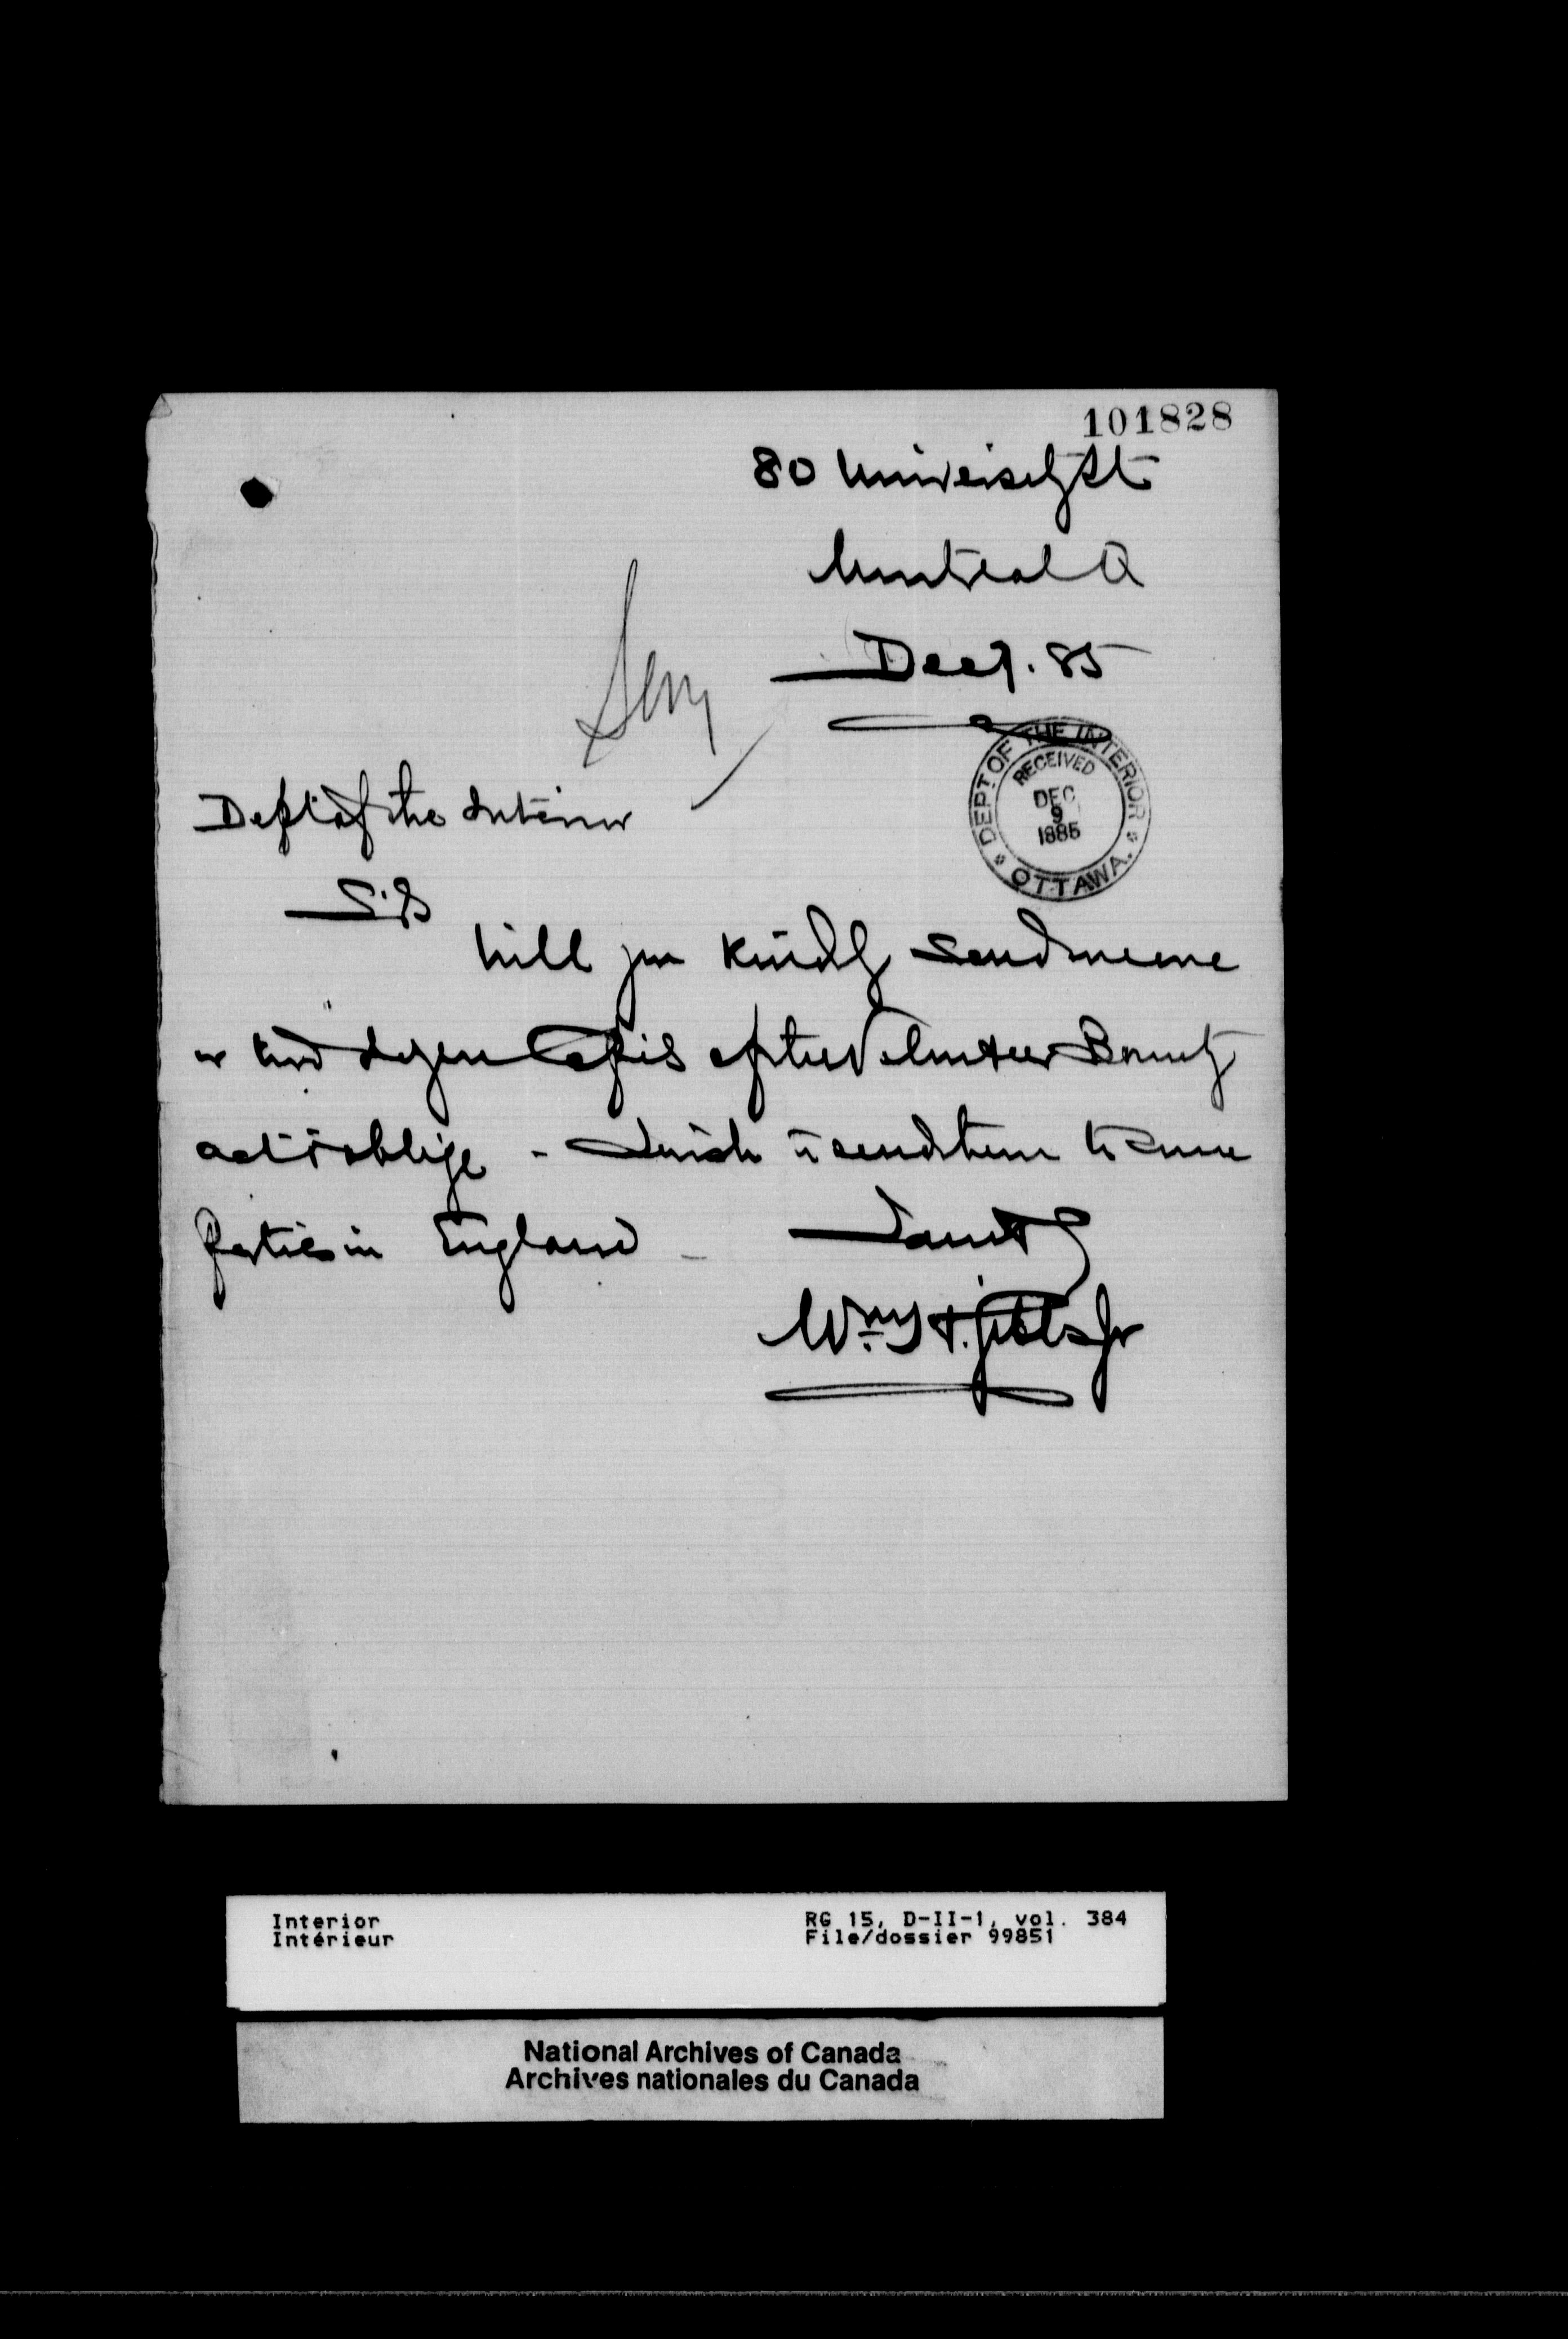 101828
80 University St
Montreal Q
Dec 7. 85
DEPT OF THE INTERIOR
RECEIVED
DEC
9
1885
OTTAWA.
Dept of the Interior
Sir
Will you kindly send me one
or two dozen Copies of the Volunteer Bounty
act & oblige - I wish to send them to some
parties in England -
Wm
Jr
Interior
Intérieur
RG 15, D-II-1, vol. 384
File/dossier 99851
National Archives of Canada
Archives nationales du Canada